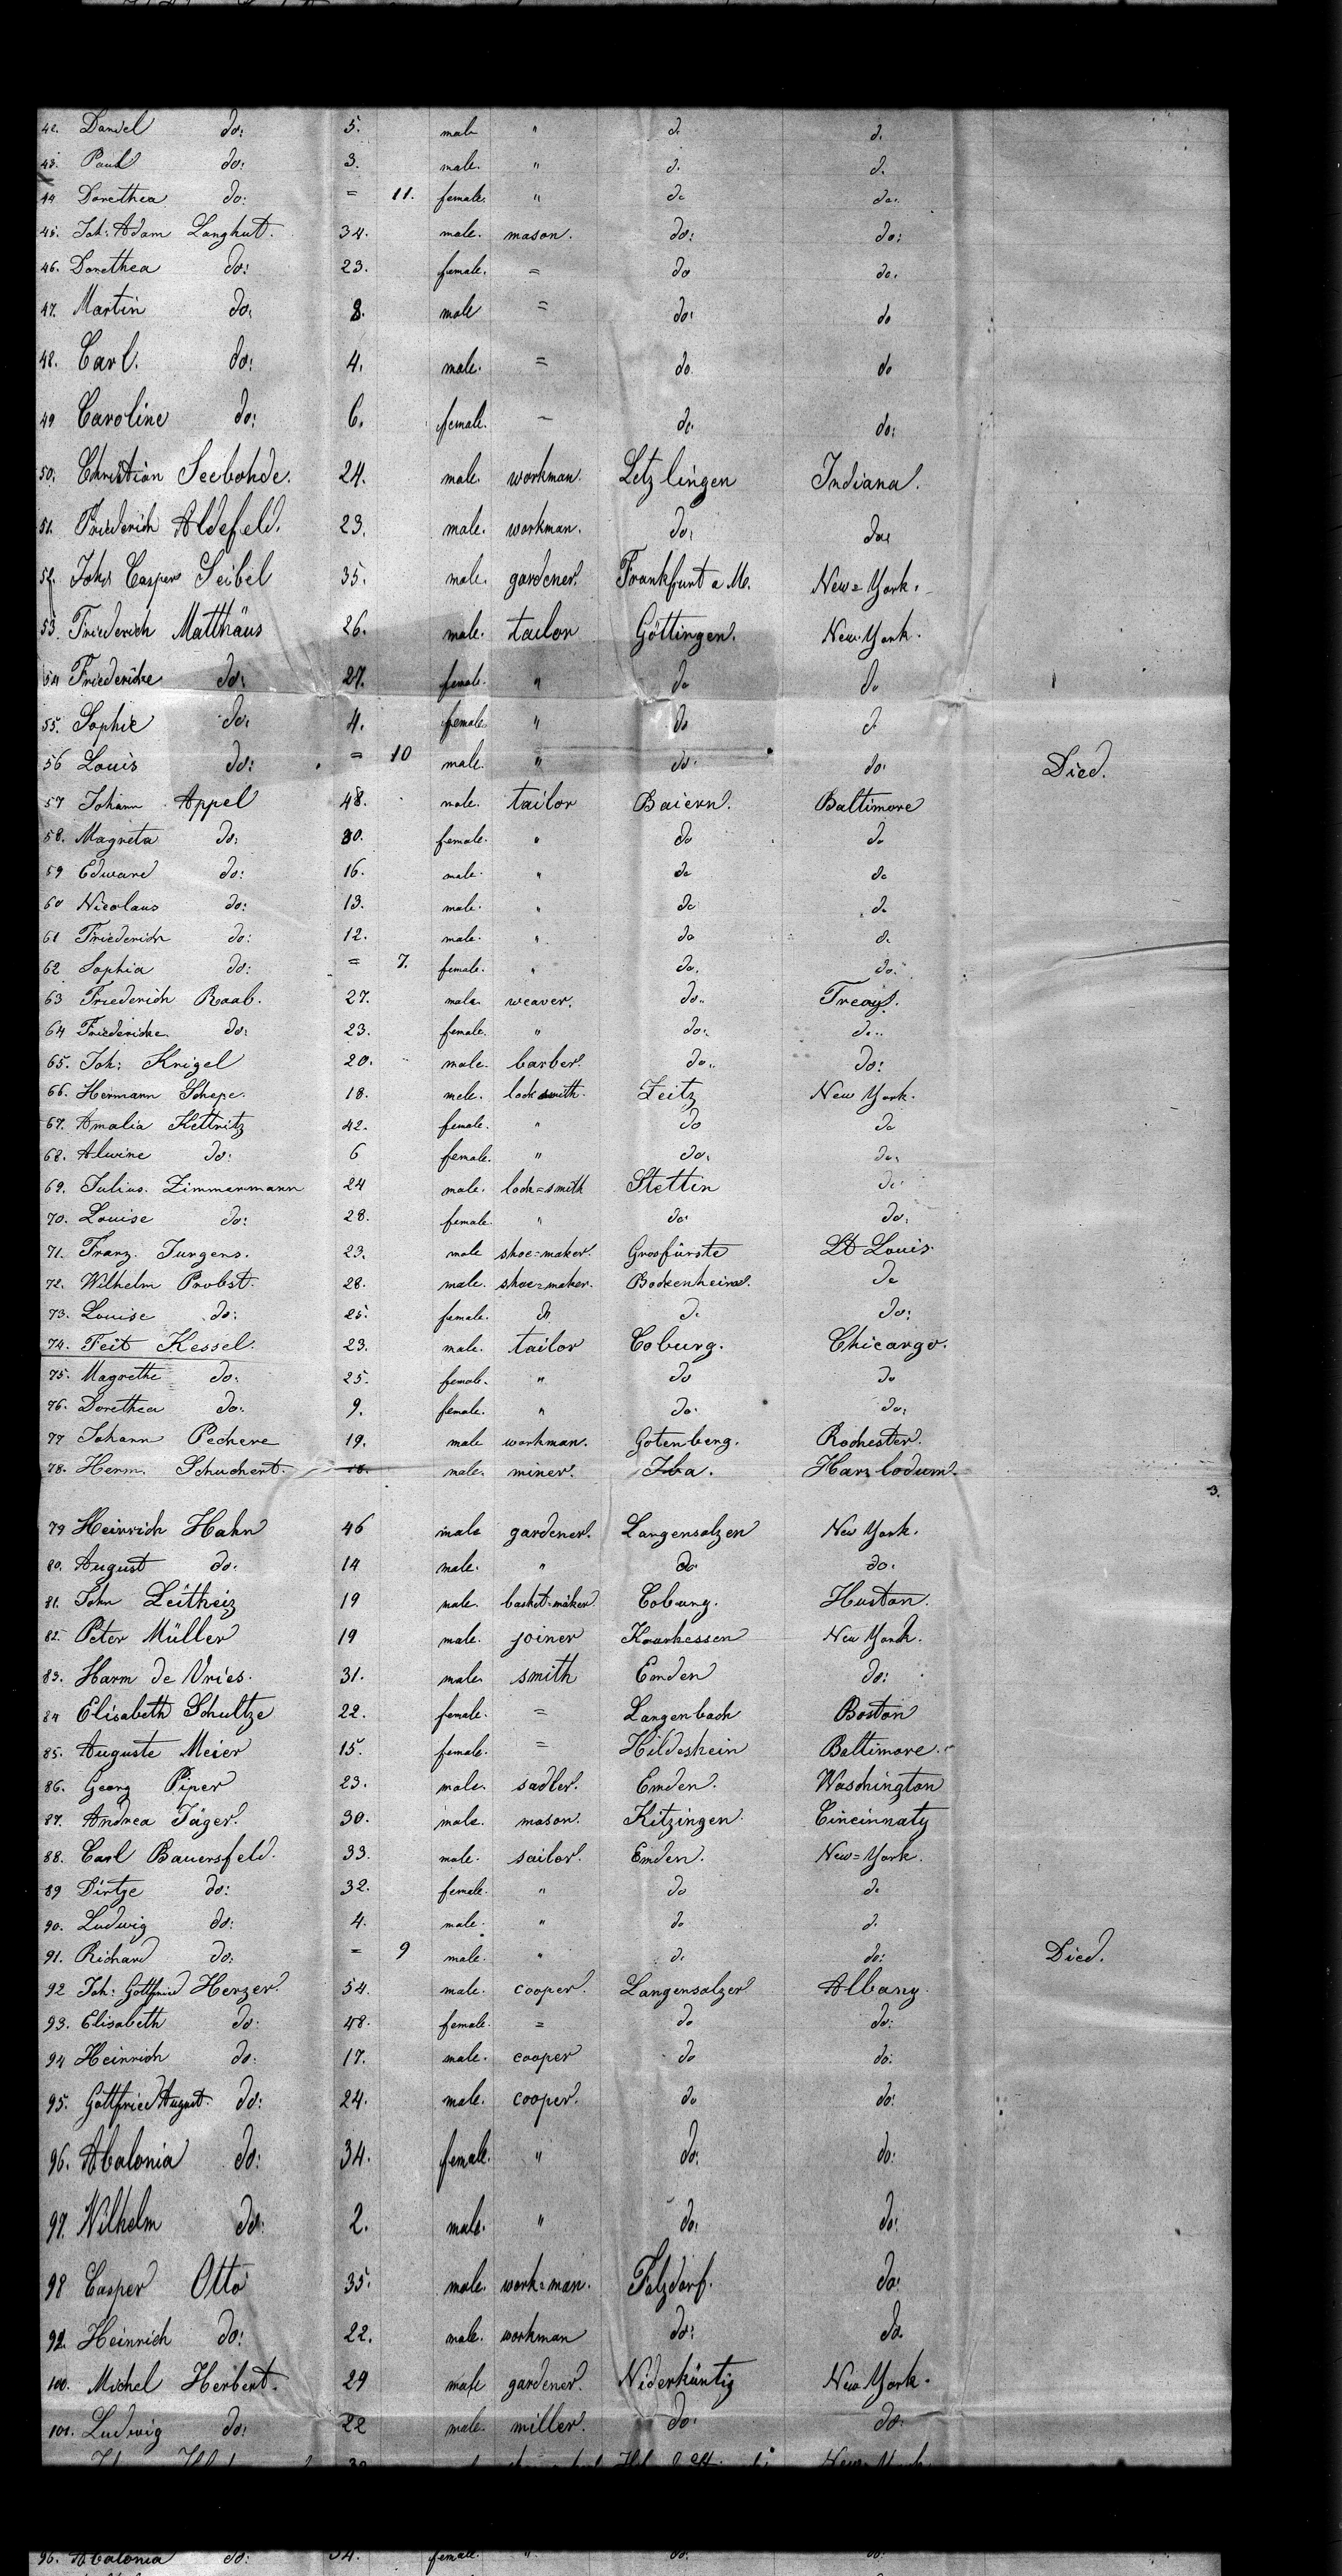 42. Daniel do: 5. male " d. d.
43. Paul do: 3. male. " d. d.
44 Dorethea do: = 11. female. " do do.
45. Joh: Adam Langhut. 34. male. mason. do: do:
46. Dorethea do: 23. female. = do do.
47. Martin do: 8. male = do: do
48. Carl. do: 4. male. = do. do
49 Caroline do: 6. female. – do. do:
50. Christian Seebohde. 24. male. workman. Letzlingen Indiana.
51. Friederich Aldefeld. 23. male. workman. do. do:
52. Johs Casper Seibel 35. male. gardener. Frankfurt a M. New=York.
53. Friederich Matthäus 26. male. tailor Göttingen. New-York.
54 Friedericke do: 27. female. " do do
55. Sophie do: 4. female. " do d.
56 Louis do: = 10 male. " do. do. Died.
57 Johann Appel 48. male. tailor Baiern. Baltimore
58. Magreta do: 30. female. " do do
59 Edward do: 16. male. " do do
60 Nicolaus do: 13. male. " do do
61 Friederich do: 12. male. " do d.
62 Sophia do: = 7. female. " do. do.
63 Friederich Raab. 27. male. weaver. do..
64 Friedericke. do: 23. female. " do: do..
65. Joh: Krigel 20. male. barber. do.. do:
66. Hermann Schepe. 18. male. locksmith. Zeitz New York.
67. Amalia Kettritz 42. female. " do do
68. Alwine do: 6 female. " do. do.
69. Julius. Zimmermann 24 male. lock=smith Stettin do.
70. Louise do: 28. female. " do. do.
71. Franz. Jurgens. 23. male shoe=maker. Grosfürste St Louis.
72. Wilhelm Probst. 28. male. shoe=maker. Bockenheim. do
73. Louise do: 25. female. do d. do:
74. Feit Kessel. 23. male. tailor Coburg. Chicargo.
75. Magrethe do: 25. female. " do do
76. Dorethea do: 9. female. " do. do.
77 Johann Pechere 19. male workman. Gotenberg. Rochester.
78. Herm. Schuchert. 18. male. miner. Iba. Harzlodum.
3.
79 Heinrich Hahn 46 male gardener. Langensalzen New York.
80. August do. 14 male. " do. do.
81. John Leitheiz 19 male. basket=maker. Coburg. Huston.
82. Peter Müller 19 male. joiner Kourhessen New York.
83. Harm de Vries. 31. male. smith Emden do:
84 Elisabeth Schultze 22. female. = Langenbach Boston
85. Auguste Meier 15. female. = Hildeshein Baltimore.
86. Georg Piper 23. male. sadler. Emden. Waschington
87. Andrea Jäger. 30. male. mason. Kitzingen Cincinnaty
88. Carl Bauersfeld. 33. male. sailor. Emden. New=York.
89 Dirtze do: 32. female. " do d.
90. Ludwig do: 4. male. " do d.
91. Richard do: = 9 male. " d. do: Died.
92 Joh: Gottfried Herzer. 54. male. cooper. Langensalzer Albany.
93. Elisabeth do: 48. female. = do do:
94 Heinrich do: 17. male. cooper do do:
95. Gottfried August. do: 24. male. cooper. do do:
96. Abalonia do: 34. female. " do: do:
97. Wilhelm do: 2. male. " do: do:
98 Casper Otto 35. male. work=man. Folzdorf. do:
99. Heinrich do: 22. male. workman do: do.
100. Michel Herbert. 29 male gardener. Niderküntig New York.
101. Ludwig do: 22 male. miller. do. do.
New=York.
96. Abalonia do: 34. female. " do. do.